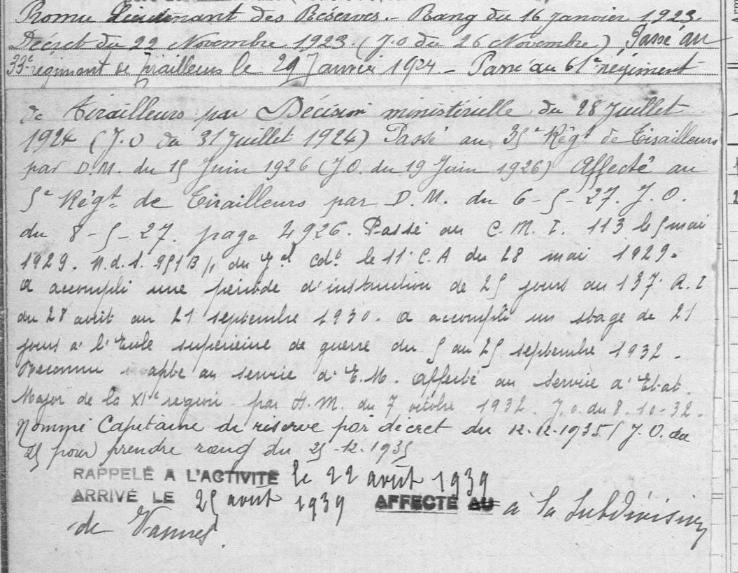 Promu Lieutenant des Réserves. - Rang du 16 janvier 1923.
Décret du 22 Novembre 1923 (J.O du 26 Novembre) Passé au
33e régiment de Tirailleurs le 29 Janvier 1924 - Passé au 61e régiment
de Tirailleurs par Décision ministérielle du 28 Juillet
1924 (J.O du 31 Juillet 1924) Passé au 35e Régt de Tirailleurs
par D.M. du 15 Juin 1926 (J.O. du 19 Juin 1926) Affecté au
5e Régt de Tirailleurs par D.M. du 6-5-27. J.O.
du 8-5-27. page 4926. Passé au C.M.I. 113 le 5 mai
1929. N.d.S. du Gal Cdt le 11e C.A du 28 mai 1929.
a accompli une période d'instruction de 25 jours au 137e R.I
du 28 août au 21 septembre 1930. a accompli un stage de 21
jours à l'Ecole supérieure de guerre du 5 au 25 septembre 1932.
Reconnu apte au service d'E.M. affecté au service d'Etat
Major de la XIe région par du 7 octobre 1932. J.o. du 8-10-32.
Nommé Capitaine de réserve par décret du 12.12.1935 (J.O. du
pour prendre rang du 25-12-1935
RAPPELÉ A L'ACTIVITÉ le 22 août 1939
ARRIVÉ LE 25 août 1939 AFFECTÉ AU à la Subdivision
de Vannes.